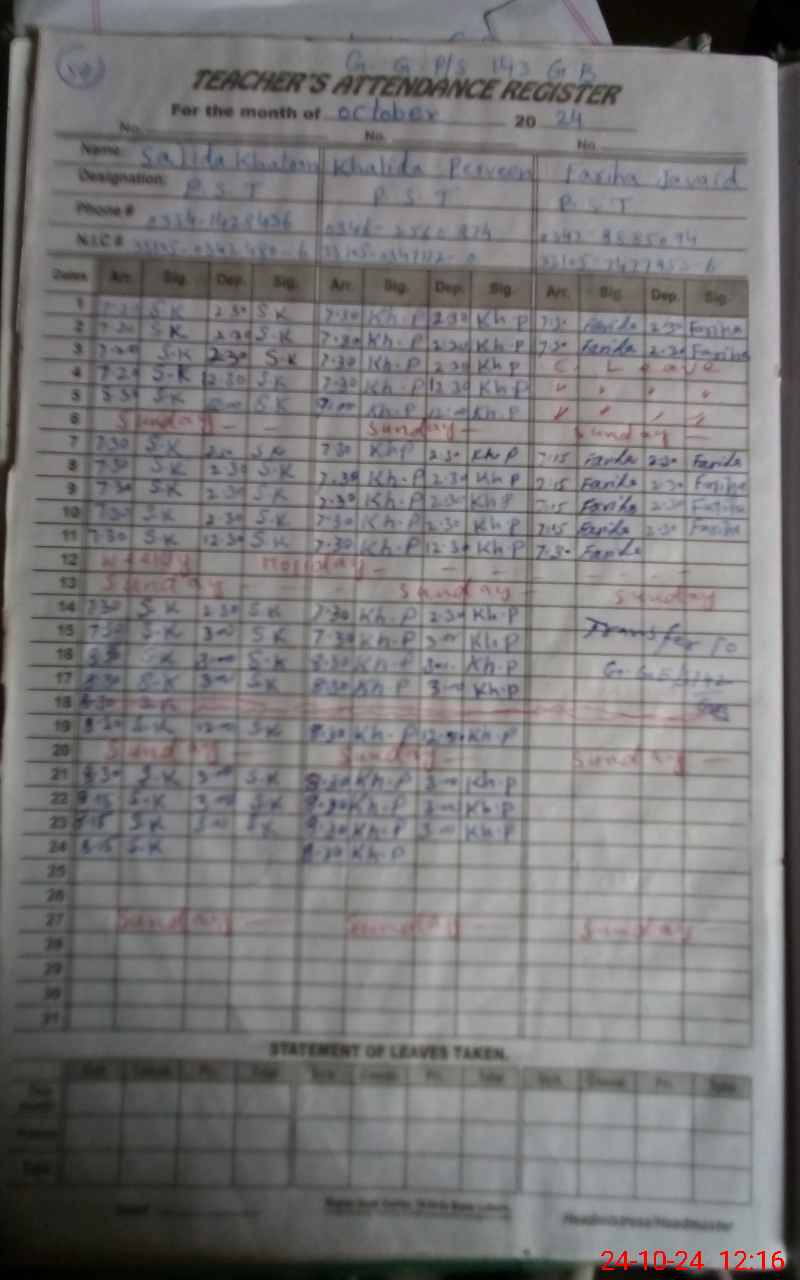 G. G. P/S 143 GB
TEACHER'S ATTENDANCE REGISTER
For the month of October 20 24
No. No. No.
Name: Sajida Khatoon Khalida Perveen Fariha Javaid
Designation: P.S.T P.S.T P.S.T
Phone #
N.I.C #
Dates Arr. Sig. Dep. Sig. Arr. Sig. Dep. Sig. Arr. Sig. Dep. Sig.
1 7.30 S.K 2.30 S.K 7.30 Kh.P 2.30 Kh.P 7.30 Fariha 2.30 Fariha
2 7.30 S.K 2.30 S.K 7.30 Kh.P 2.30 Kh.P 7.30 Fariha 2.30 Fariha
3 7.30 S.K 2.30 S.K 7.30 Kh.P 2.30 Kh.P C. Leave
4 7.30 S.K 12.30 S.K 7.30 Kh.P 12.30 Kh.P " " " "
5 S.K S.K Kh.P Kh.P " " " "
6 Sunday - - Sunday - Sunday -
7 7.30 S.K S.K 7.30 Kh.P 2.30 Kh.P 7.15 Fariha 2.30 Fariha
8 7.30 S.K 2.30 S.K 7.30 Kh.P 2.30 Kh.P 7.15 Fariha 2.30 Fariha
9 7.30 S.K 2.30 S.K 7.30 Kh.P 2.30 Kh.P 7.15 Fariha 2.30 Fariha
10 7.30 S.K 2.30 S.K 7.30 Kh.P 2.30 Kh.P 7.15 Fariha 2.30 Fariha
11 7.30 S.K 12.30 S.K 7.30 Kh.P 12.30 Kh.P 7.30 Fariha
12 Weekly Holiday - - - - - - -
13 Sunday - - Sunday - Sunday
14 7.30 S.K 2.30 S.K 7.30 Kh.P 2.30 Kh.P
15 7.30 S.K 3.00 S.K 7.30 Kh.P 3.00 Kh.P Transfer to
16 8.30 S.K 3.00 S.K 8.30 Kh.P 3.00 Kh.P
17 8.30 S.K 3.00 S.K 8.30 Kh.P 3.00 Kh.P
18 8.30 S.K
19 8.30 S.K 12.00 S.K 8.30 Kh.P Kh.P
20 Sunday - Sunday - Sunday -
21 8.30 S.K 3.00 S.K 8.30 Kh.P 3.00 Kh.P
22 8.15 S.K 3.00 S.K 8.30 Kh.P 3.00 Kh.P
23 8.15 S.K 3.00 S.K 8.30 Kh.P 3.00 Kh.P
24 8.15 S.K 8.30 Kh.P
25
26
27 Sunday - Sunday - Sunday
28
29
30
31
STATEMENT OF LEAVES TAKEN.
Headmistress/Headmaster
24-10-24 12:16